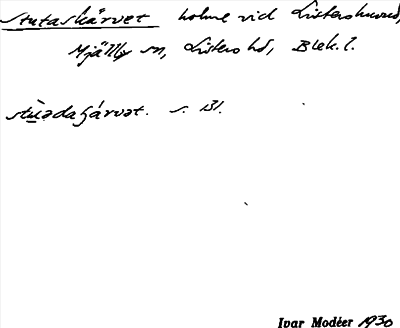 Stutaskärvet holme vid Listershuvud,
Mjällby sn, Listers hd, Blek. l.
s. 131.
Ivar Modéer 1930